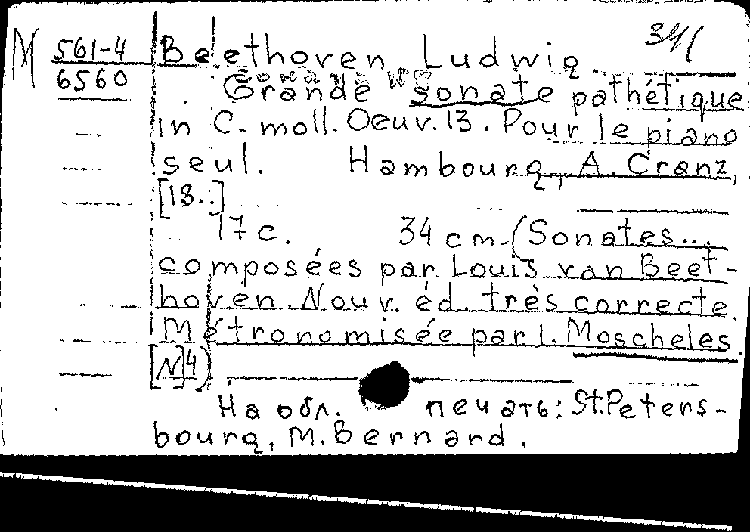 М 561-4
6560
341
Beethoven, Ludwig
Grande sonate pathétique
in C-moll. Oeuv. 13. Pour le piano
seul. Hambourg, A. Cranz,
[18..]
17 c. 34 cm. (Sonates...
composées par Louis van Beet-
hoven. Nouv. éd. très correcte.
Métronomisée par I. Moscheles
[N4])
На обл. печать: St. Peters-
bourg, M. Bernard.